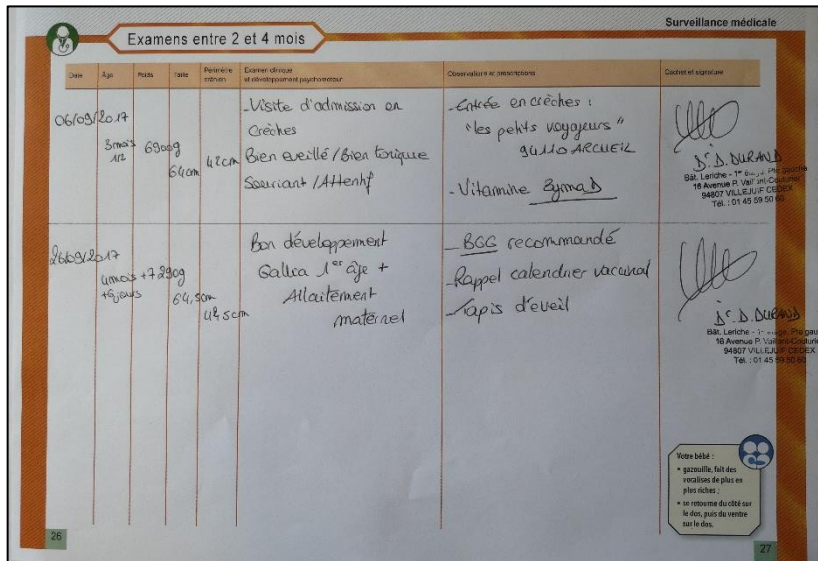 Surveillance médicale
Examens entre 2 et 4 mois
Date Âge Poids Taille Périmètre crânien Examen clinique et développement psychomoteur Observations et prescriptions Cachet et signature
06/09/2017
3mois 1/2
6900g
64cm
42cm
-Visite d'admission en
Crèches
Bien eveillé / Bien tonique
Souriant / Attentif
-Entrée en crèches :
"les petits voyageurs"
94110 ARCUEIL
-Vitamine ZymaD
Dr. D. DURAND
Bât. Leriche - 1er étage Pte gauche
16 Avenue P. Vaillant-Couturier
94807 VILLEJUIF CEDEX
Tél. : 01 45 59 50 60
26/09/2017
4mois +
+6jours
7290g
64,5cm
42,5cm
Bon développement
Gallia 1er âge +
Allaitement
maternel
- BGG recommandé
-Rappel calendrier vaccinal
-Tapis d'éveil
Dr. D. DURAND
Bât. Leriche - 1er étage, Pte gau
16 Avenue P. Vaillant-Couturie
94807 VILLEJUIF CEDEX
Tél. : 01 45 59 50 60
Votre bébé :
• gazouille, fait des
vocalises de plus en
plus riches ;
• se retourne du côté sur
le dos, puis du ventre
sur le dos.
26
27